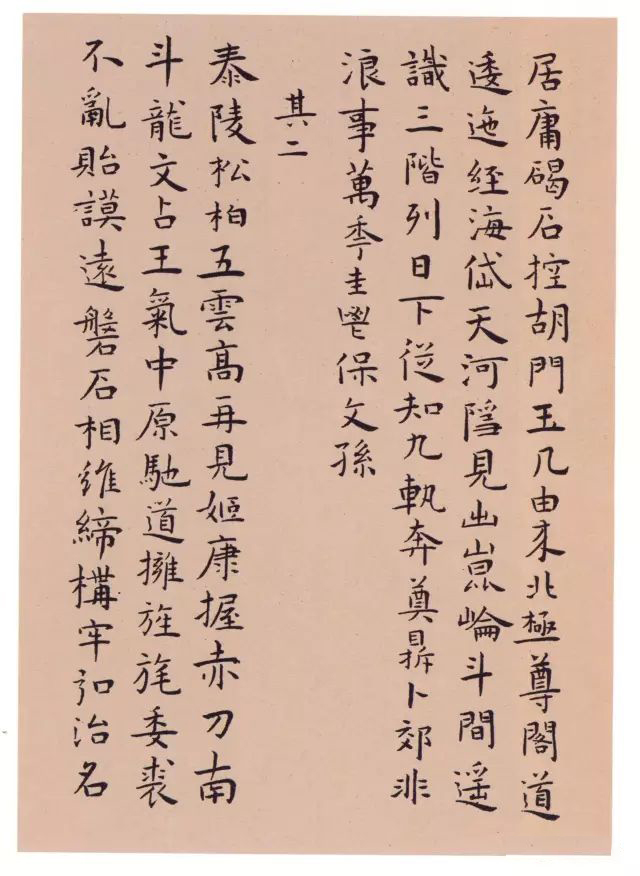 居庸碣石控胡門玉几由来北極尊閣道
逶迤経海岱天河隱見出崑崘斗間遥
識三階列日下從知九軌奔奠鼎卜郊非
浪事萬秊圭鬯保文孫
其二
泰陵松柏五雲高再見姬康握赤刀南
斗龍文占王氣中原馳道擁旌旄委裘
不亂貽謨遠磐石相維締構牢弘治名